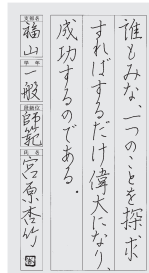 誰もみな、一つのことを探求
すればするだけ偉大になり、
成功するのである。
支部名
福山
学年
一般
段級位
師範
氏名
宮原杏竹